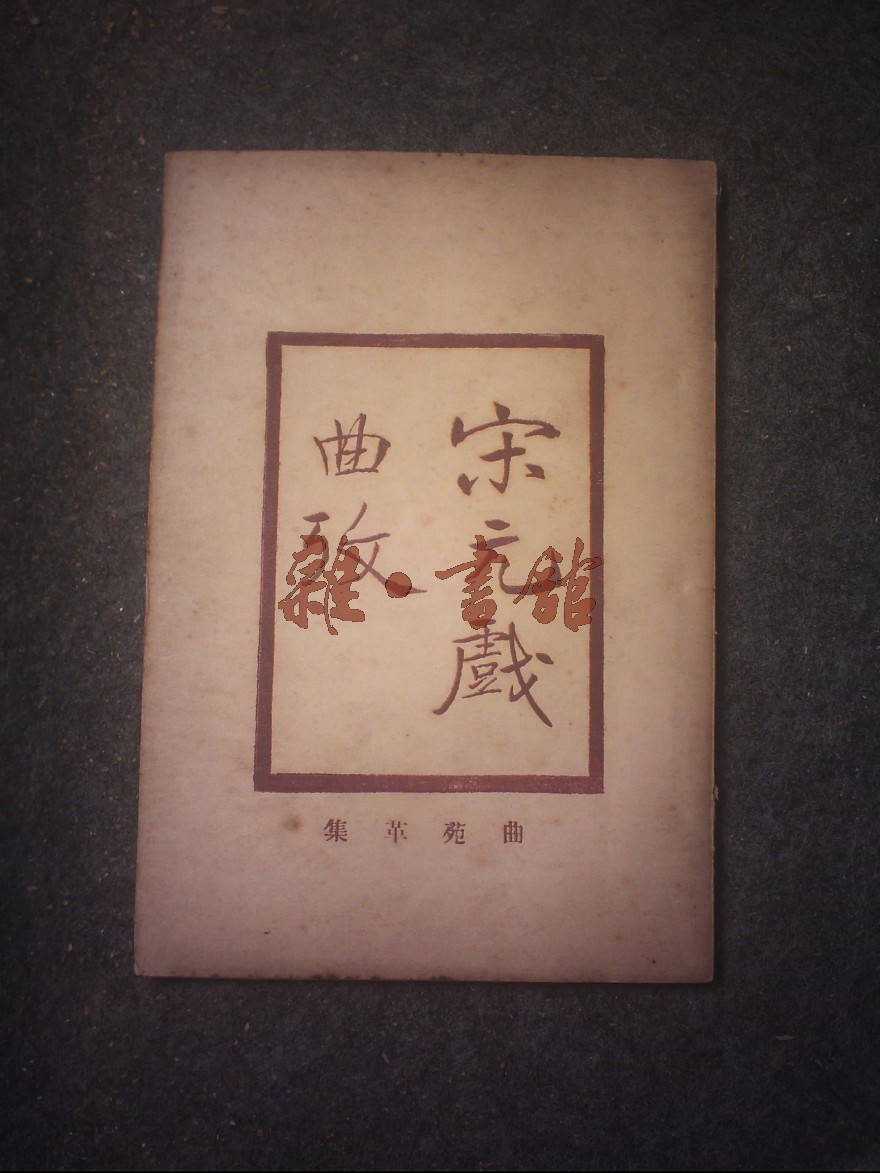 宋元戲
曲攷
雜·書館
曲苑革集